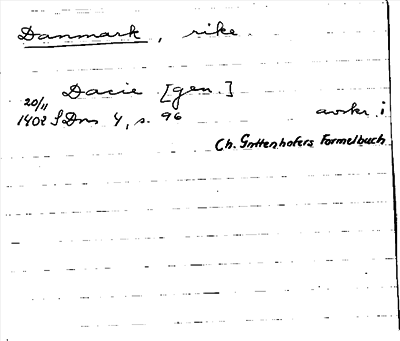 Danmark, rike
Dacie [gen.]
20/11
1402 SDns 4, s. 96 avskr. i
Ch. Gottenhofers Formelbuch